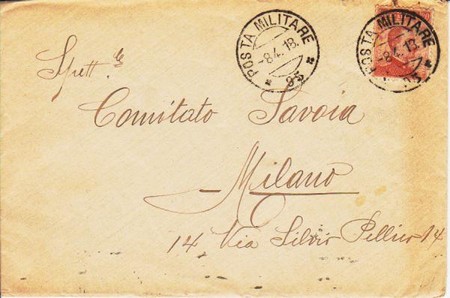 POSTA MILITARE
-8.4.18.
95
POSTA MILITARE
-8.4.18.
95
Spett. le
Comitato Savoia
Milano
14 Via Silvio Pellico 14